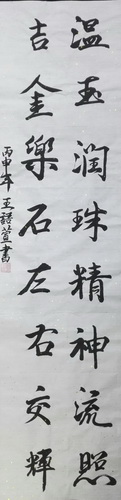 温玉润珠精神流照
吉金樂石左右交輝
丙申年王語萱書